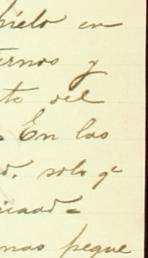 hielo en
ernos y
to del
. En las
d. solo qe
icaad=
nas peque